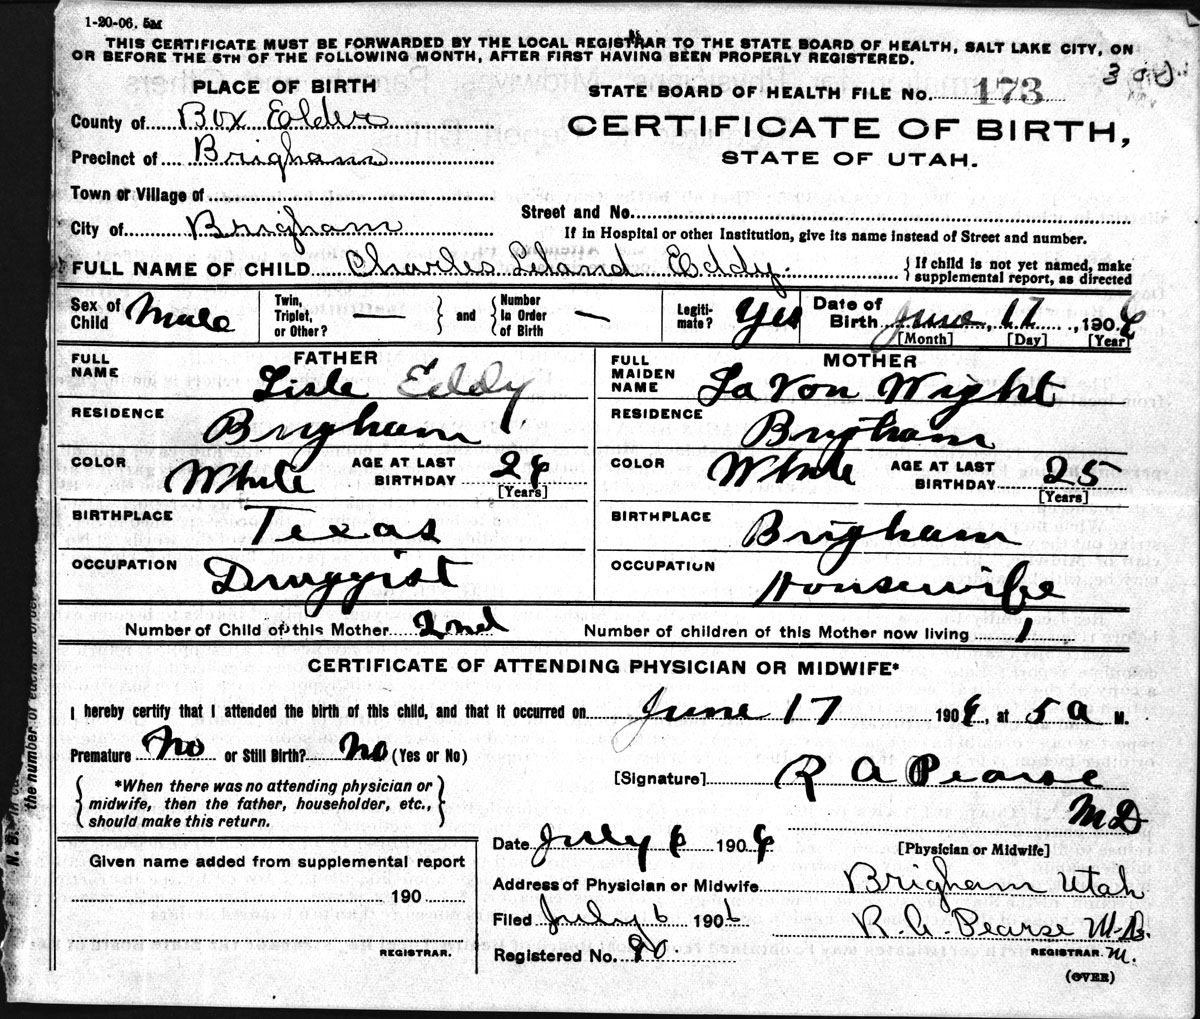 1-20-06. 5M
THIS CERTIFICATE MUST BE FORWARDED BY THE LOCAL REGISTRAR TO THE STATE BOARD OF HEALTH, SALT LAKE CITY, ON
OR BEFORE THE 5TH OF THE FOLLOWING MONTH, AFTER FIRST HAVING BEEN PROPERLY REGISTERED.
PLACE OF BIRTH
STATE BOARD OF HEALTH FILE NO. 173
County of Box Elder
CERTIFICATE OF BIRTH,
Precinct of Brigham
STATE OF UTAH.
Town or Village of
Street and No.
City of Brigham
If in Hospital or other Institution, give its name instead of Street and number.
FULL NAME OF CHILD Charles Leland Eddy. { If child is not yet named, make supplemental report, as directed
Sex of Child Male Twin, Triplet, or Other? — } and { Number in Order of Birth — Legitimate? Yes Date of Birth June, 17, 1906
[Month] [Day] [Year]
FATHER
MOTHER
FULL NAME Lisle Eddy
FULL MAIDEN NAME La Von Wight
RESIDENCE Brigham
RESIDENCE Brigham
COLOR White AGE AT LAST BIRTHDAY 26 [Years]
COLOR White AGE AT LAST BIRTHDAY 25 [Years]
BIRTHPLACE Texas
BIRTHPLACE Brigham
OCCUPATION Druggist
OCCUPATION Housewife
Number of Child of this Mother 2nd Number of children of this Mother now living 1
CERTIFICATE OF ATTENDING PHYSICIAN OR MIDWIFE*
I hereby certify that I attended the birth of this child, and that it occurred on June 17 1906, at 5 a M.
Premature No or Still Birth? No (Yes or No)
[Signature] R A Pearse
MD
{ *When there was no attending physician or
midwife, then the father, householder, etc.,
should make this return. }
Date July 6 1906
[Physician or Midwife]
Given name added from supplemental report
190
REGISTRAR.
Address of Physician or Midwife Brigham Utah
Filed July 6 1906 R. A. Pearse M.D.
Registered No. 90.
REGISTRAR.
(OVER)